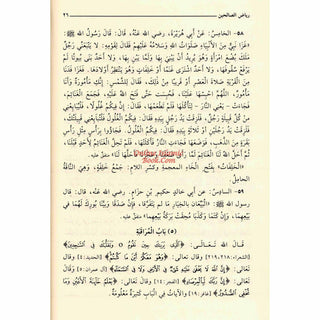 رياض الصالحين
٤٦
٥٨- الخامِسُ: عَنْ أبي هُرَيْرَةَ، رضي الله عنه، قال: قالَ رَسُولُ اللهِ ﷺ:
«غَزَا نَبِيٌّ مِنَ الأَنْبِيَاءِ صَلَوَاتُ اللهِ وَسَلامُهُ عَلَيْهِمْ فَقَالَ لِقَوْمِهِ: لا يَتْبَعَنِّي رَجُلٌ
مَلَكَ بُضْعَ امْرَأَةٍ وَهُوَ يُرِيدُ أَنْ يَبْنِيَ بِهَا وَلَمَّا يَبْنِ بِهَا، وَلا أَحَدٌ بَنَى بُيُوتاً لَمْ
يَرْفَعْ سُقُوفَهَا، وَلا أَحَدٌ اشْتَرَى غَنَماً أَوْ خَلِفَاتٍ وَهُوَ يَنْتَظِرُ أَوْلادَهَا. فَغَزَا فَدَنَا
مِنَ القَرْيَةِ صَلاةَ العَصْرِ أَوْ قَرِيباً مِنْ ذَلِكَ، فَقَالَ لِلشَّمْسِ: إِنَّكِ مَأْمُورَةٌ وَأَنَا
مَأْمُورٌ، اللَّهُمَّ احْبِسْهَا عَلَيْنَا، فَحُبِسَتْ حَتَّى فَتَحَ اللهُ عَلَيْهِ، فَجَمَعَ الغَنَائِمَ،
فَجَاءَتْ - يعني النَّارَ - لِتَأْكُلَهَا فَلَمْ تَطْعَمْهَا، فَقَالَ: إِنَّ فِيكُمْ غُلُولاً، فَلْيُبَايِعْنِي
مِنْ كُلِّ قَبِيلَةٍ رَجُلٌ، فَلَزِقَتْ يَدُ رَجُلٍ بِيَدِهِ فَقَالَ: فِيكُمُ الغُلُولُ، فَلْتُبَايِعْنِي قَبِيلَتُكَ،
فَلَزِقَتْ يَدُ رَجُلَيْنِ أَوْ ثَلاثَةٍ بِيَدِهِ فَقَالَ: فِيكُمُ الغُلُولُ. فَجَاؤوا بِرَأْسٍ مِثْلِ رَأْسِ
بَقَرَةٍ مِنَ الذَّهَبِ، فَوَضَعَهَا فَجَاءَتِ النَّارُ فَأَكَلَتْهَا، فَلَمْ تَحِلَّ الغَنَائِمُ لأَحَدٍ قَبْلَنَا،
ثُمَّ أَحَلَّ اللهُ لَنَا الغَنَائِمَ لَمَّا رَأَى ضَعْفَنَا وَعَجْزَنَا فَأَحَلَّهَا لَنَا» متفقٌ عليه.
«الخَلِفَاتُ» بفتحِ الخاءِ المعجمةِ وكسرِ اللام: جَمْعُ خَلِفَةٍ، وهي النَّاقَةُ
الحامِلُ.
٥٩- السادِسُ: عن أبي خالدٍ حكيمِ بنِ حِزَامٍ، رضي الله عنه، قال: قال
رسولُ اللهِ ﷺ: «البَيِّعَانِ بِالخِيَارِ مَا لَمْ يَتَفَرَّقَا، فَإِنْ صَدَقَا وَبَيَّنَا بُورِكَ لَهُمَا في
بَيْعِهِمَا، وَإِنْ كَتَمَا وَكَذَبَا مُحِقَتْ بَرَكَةُ بَيْعِهِمَا» متفقٌ عليه.
(٥) بَابُ المُرَاقَبَةِ
قَالَ اللهُ تَعَالَى: ﴿الَّذِي يَرَاكَ حِينَ تَقُومُ ۝ وَتَقَلُّبَكَ فِي السَّاجِدِينَ﴾
[الشعراء: ٢١٨، ٢١٩] وقال تعالى: ﴿وَهُوَ مَعَكُمْ أَيْنَ مَا كُنْتُمْ﴾ [الحديد: ٤] وقال
تعالى: ﴿إِنَّ اللهَ لا يَخْفَى عَلَيْهِ شَيْءٌ فِي الأَرْضِ وَلا فِي السَّمَاءِ﴾ [آل عمران: ٥] وقال
تعالى: ﴿إِنَّ رَبَّكَ لَبِالْمِرْصَادِ﴾ [الفجر: ١٤] وقال تعالى: ﴿يَعْلَمُ خَائِنَةَ الأَعْيُنِ وَمَا
تُخْفِي الصُّدُورُ﴾ [غافر: ١٩] والآيات في البَابِ كَثِيرَةٌ مَعْلُومَةٌ.